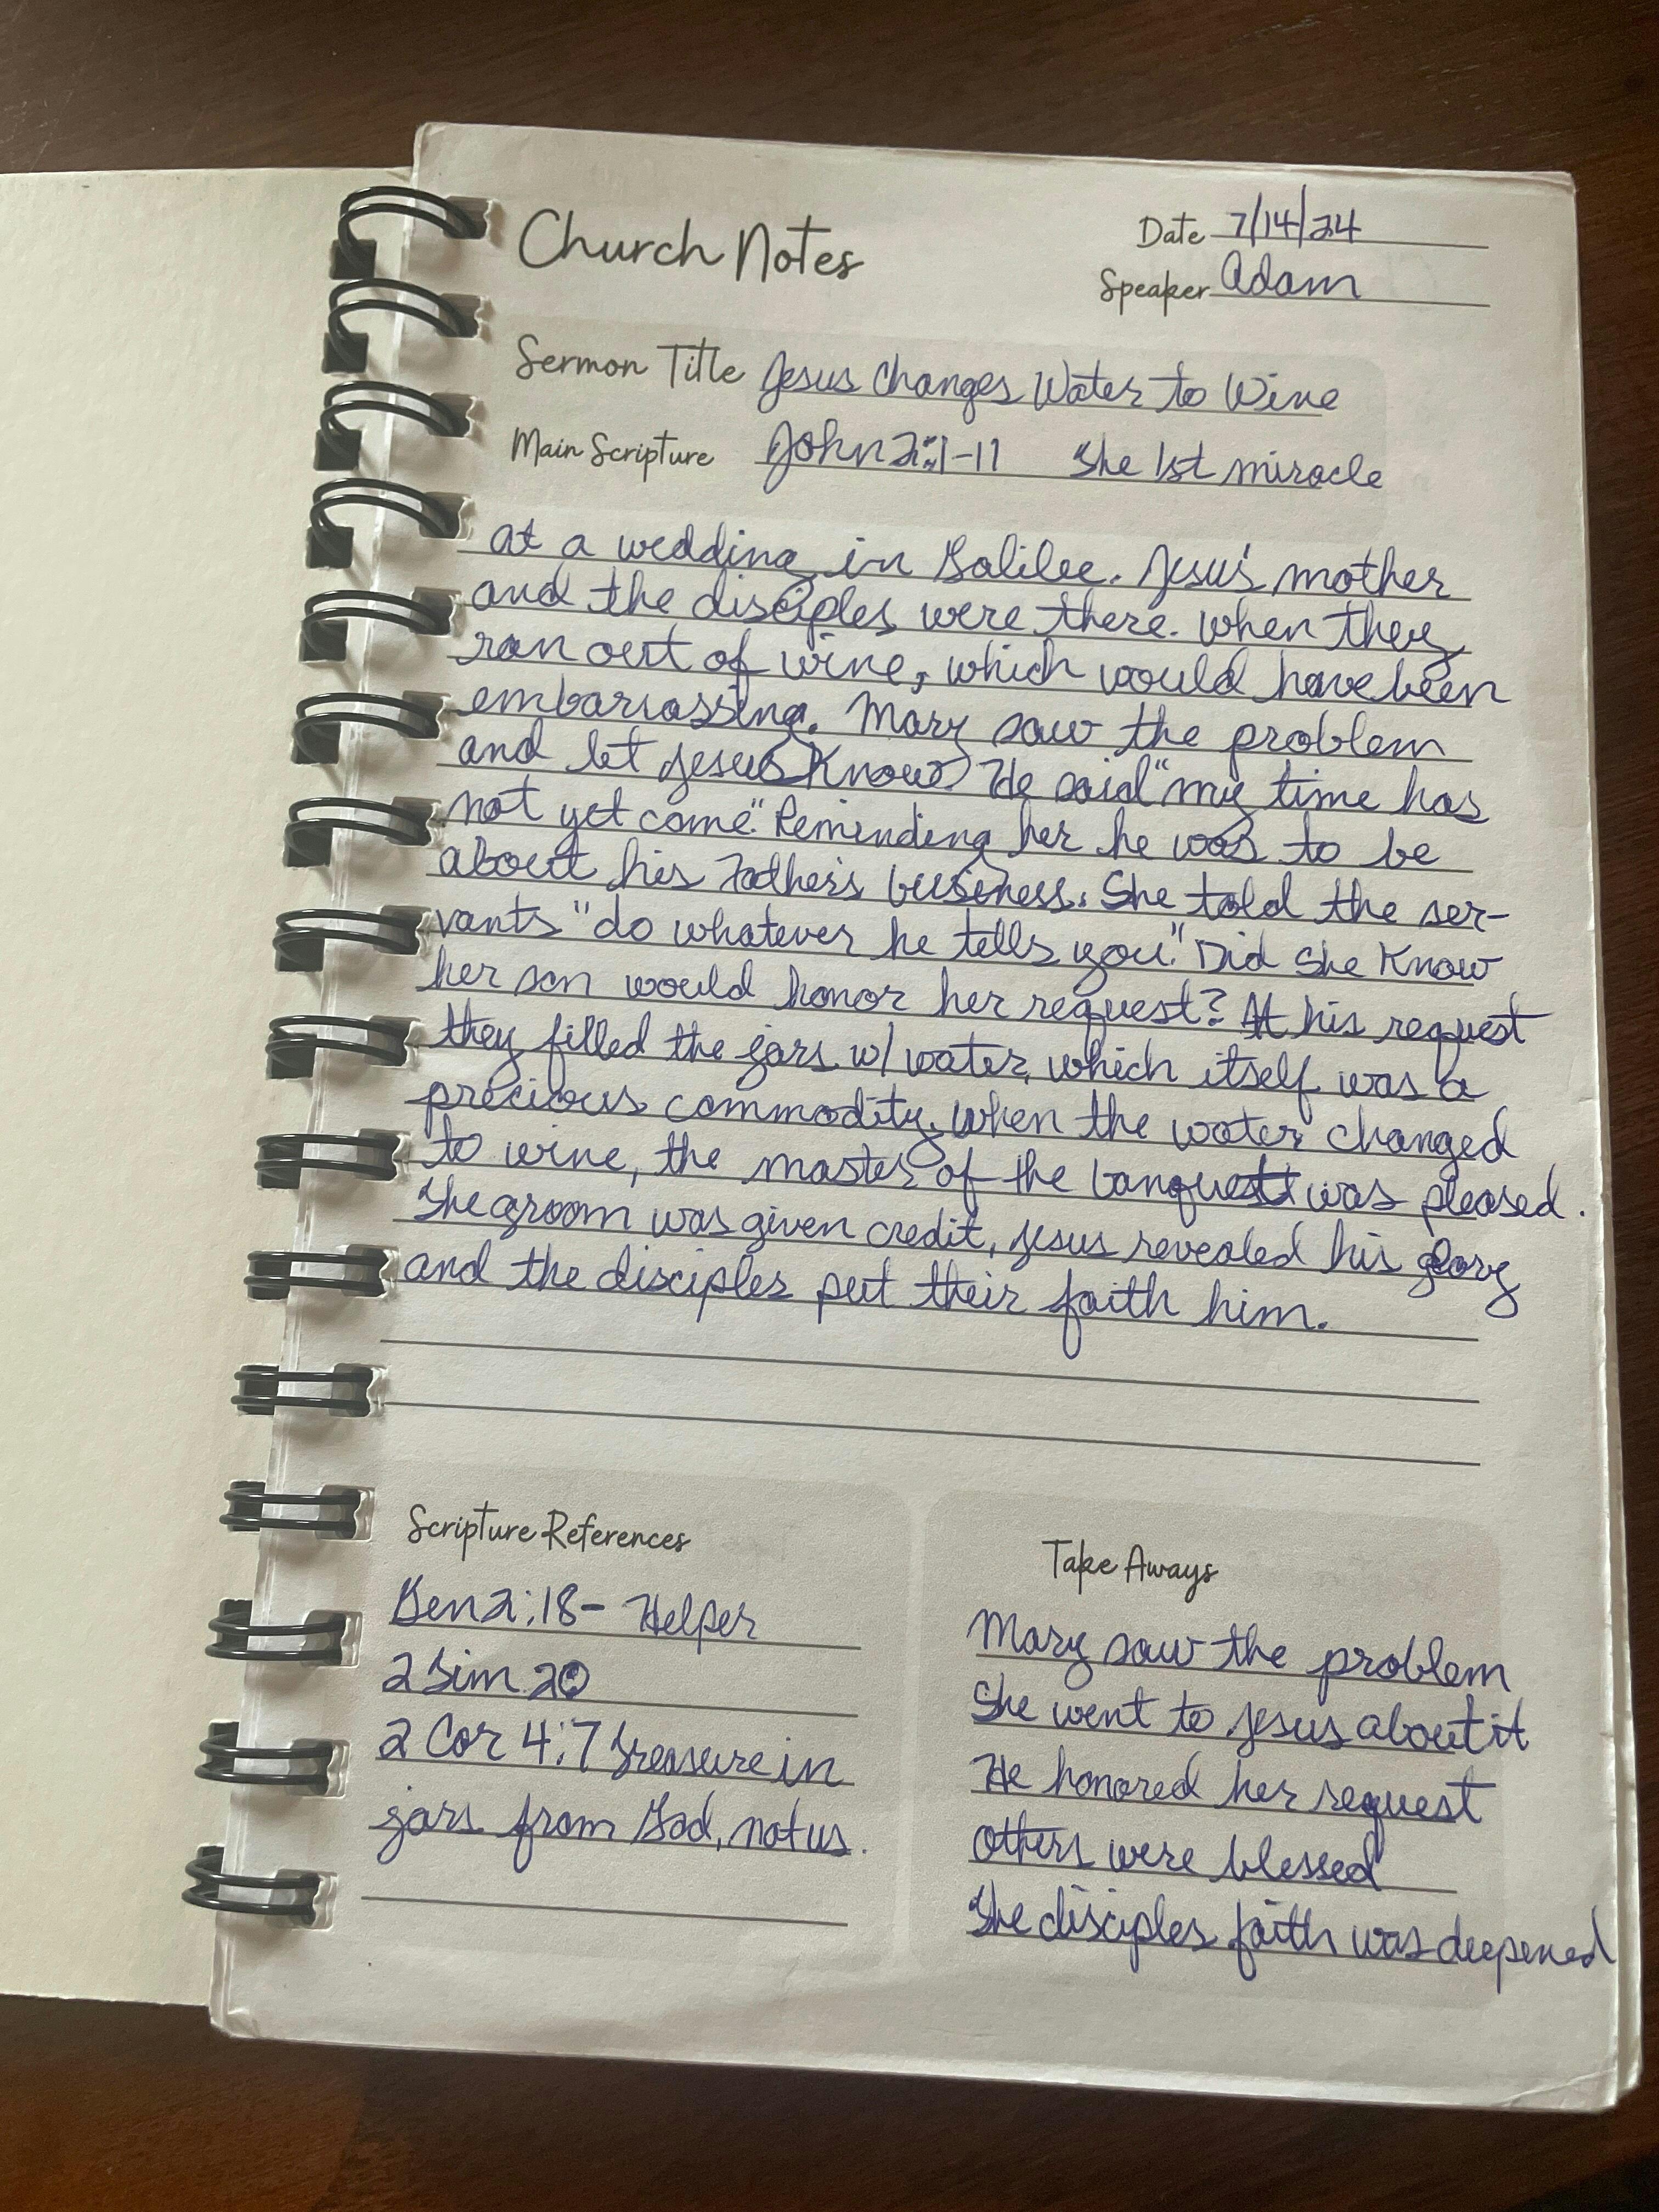 Church Notes
Date 7/14/24
Speaker Adam
Sermon Title Jesus Changes Water to Wine
Main Scripture John 2:1-11 The 1st miracle
at a wedding in Galilee. Jesus's mother
and the disciples were there. When they
ran out of wine, which would have been
embarrassing. Mary saw the problem
and let Jesus know. He said "my time has
not yet come." Reminding her he was to be
about his Father's business. She told the ser-
vants "do whatever he tells you." Did she know
her son would honor her request? At his request
they filled the jars w/ water, which itself was a
precious commodity. When the water changed
to wine, the master of the banquet was pleased.
The groom was given credit, Jesus revealed his glory
and the disciples put their faith him.
Scripture References
Gen 2:18- Helper
2 Tim 20
2 Cor 4:7 Treasure in
jars from God, not us.
Take Aways
Mary saw the problem
She went to Jesus about it
He honored her request
Others were blessed
The disciples faith was deepened